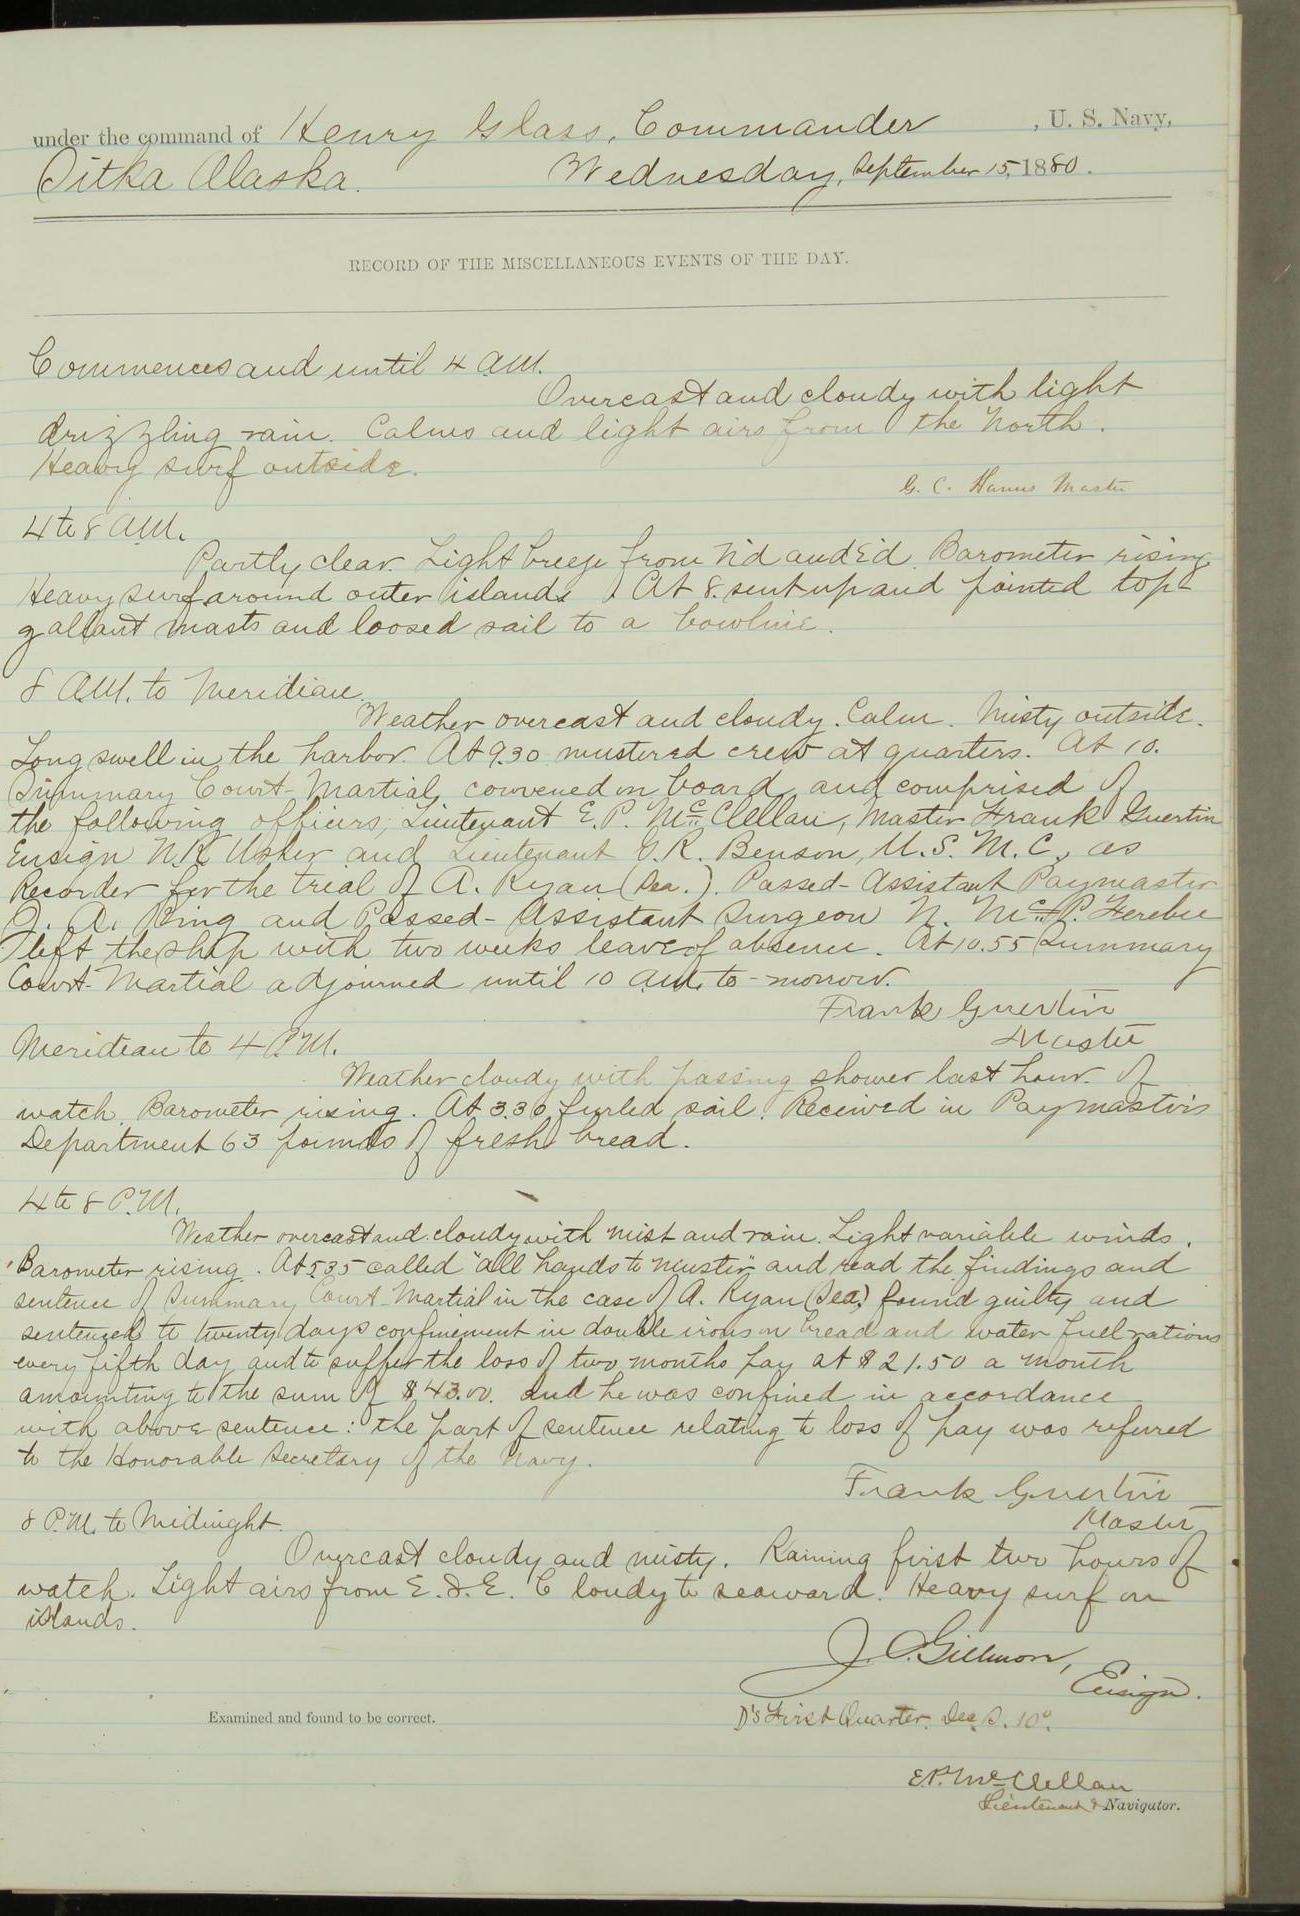 under the command of Henry Glass, Commander, U. S. Navy,
Sitka Alaska. Wednesday, September 15, 1880.
RECORD OF THE MISCELLANEOUS EVENTS OF THE DAY.
Commences and until 4 A.M.
Overcast and cloudy with light
drizzling rain. Calms and light airs from the North.
Heavy surf outside.
G. C. Hanus Master
4 to 8 A.M.
Partly clear. Light breeze from N'd and E'd. Barometer rising
Heavy surf around outer islands. At 8. sent up and pointed top-
gallant masts and loosed sail to a bowline.
8 A.M. to Meridian.
Weather overcast and cloudy. Calm. Misty outside.
Long swell in the harbor. At 9.30 mustered crew at quarters. At 10.
Summary Court-Martial, convened on board, and comprised of
the following officers, Lieutenant E. P. McClellan, Master Frank Guertin
Ensign N. R. Usher and Lieutenant J. R. Benson, U. S. M. C., as
Recorder for the trial of A. Ryan (Sea.). Passed-Assistant Paymaster
J. A. Ring and Passed-Assistant Surgeon N. McP. Ferebee
left the ship with two weeks leave of absence. At 10.55 Summary
Court-Martial adjourned until 10 a.m. to-morrow.
Frank Guertin
Master
Meridian to 4 P.M.
Weather cloudy with passing shower last hour of
watch. Barometer rising. At 3.30 furled sail. Received in Paymaster's
Department 63 pounds of fresh bread.
4 to 8 P.M.
Weather overcast and cloudy with mist and rain. Light variable winds.
Barometer rising. At 5.35 called "all hands to muster" and read the findings and
sentence of Summary Court-Martial in the case of A. Ryan (Sea.) found guilty and
sentenced to twenty days confinement in double irons on bread and water full rations
every fifth day and to suffer the loss of two months pay at $21.50 a month
amounting to the sum of $43.00. and he was confined in accordance
with above sentence: the part of sentence relating to loss of pay was referred
to the Honorable Secretary of the Navy.
Frank Guertin
Master
8 P.M. to Midnight.
Overcast cloudy and misty. Raining first two hours of
watch. Light airs from E.S.E. Cloudy to seaward. Heavy surf on
islands.
J. C. Gillmore,
Ensign.
Examined and found to be correct.
D's First Quarter. Dec. S. 10°.
E. P. McClellan
Lieutenant & Navigator.